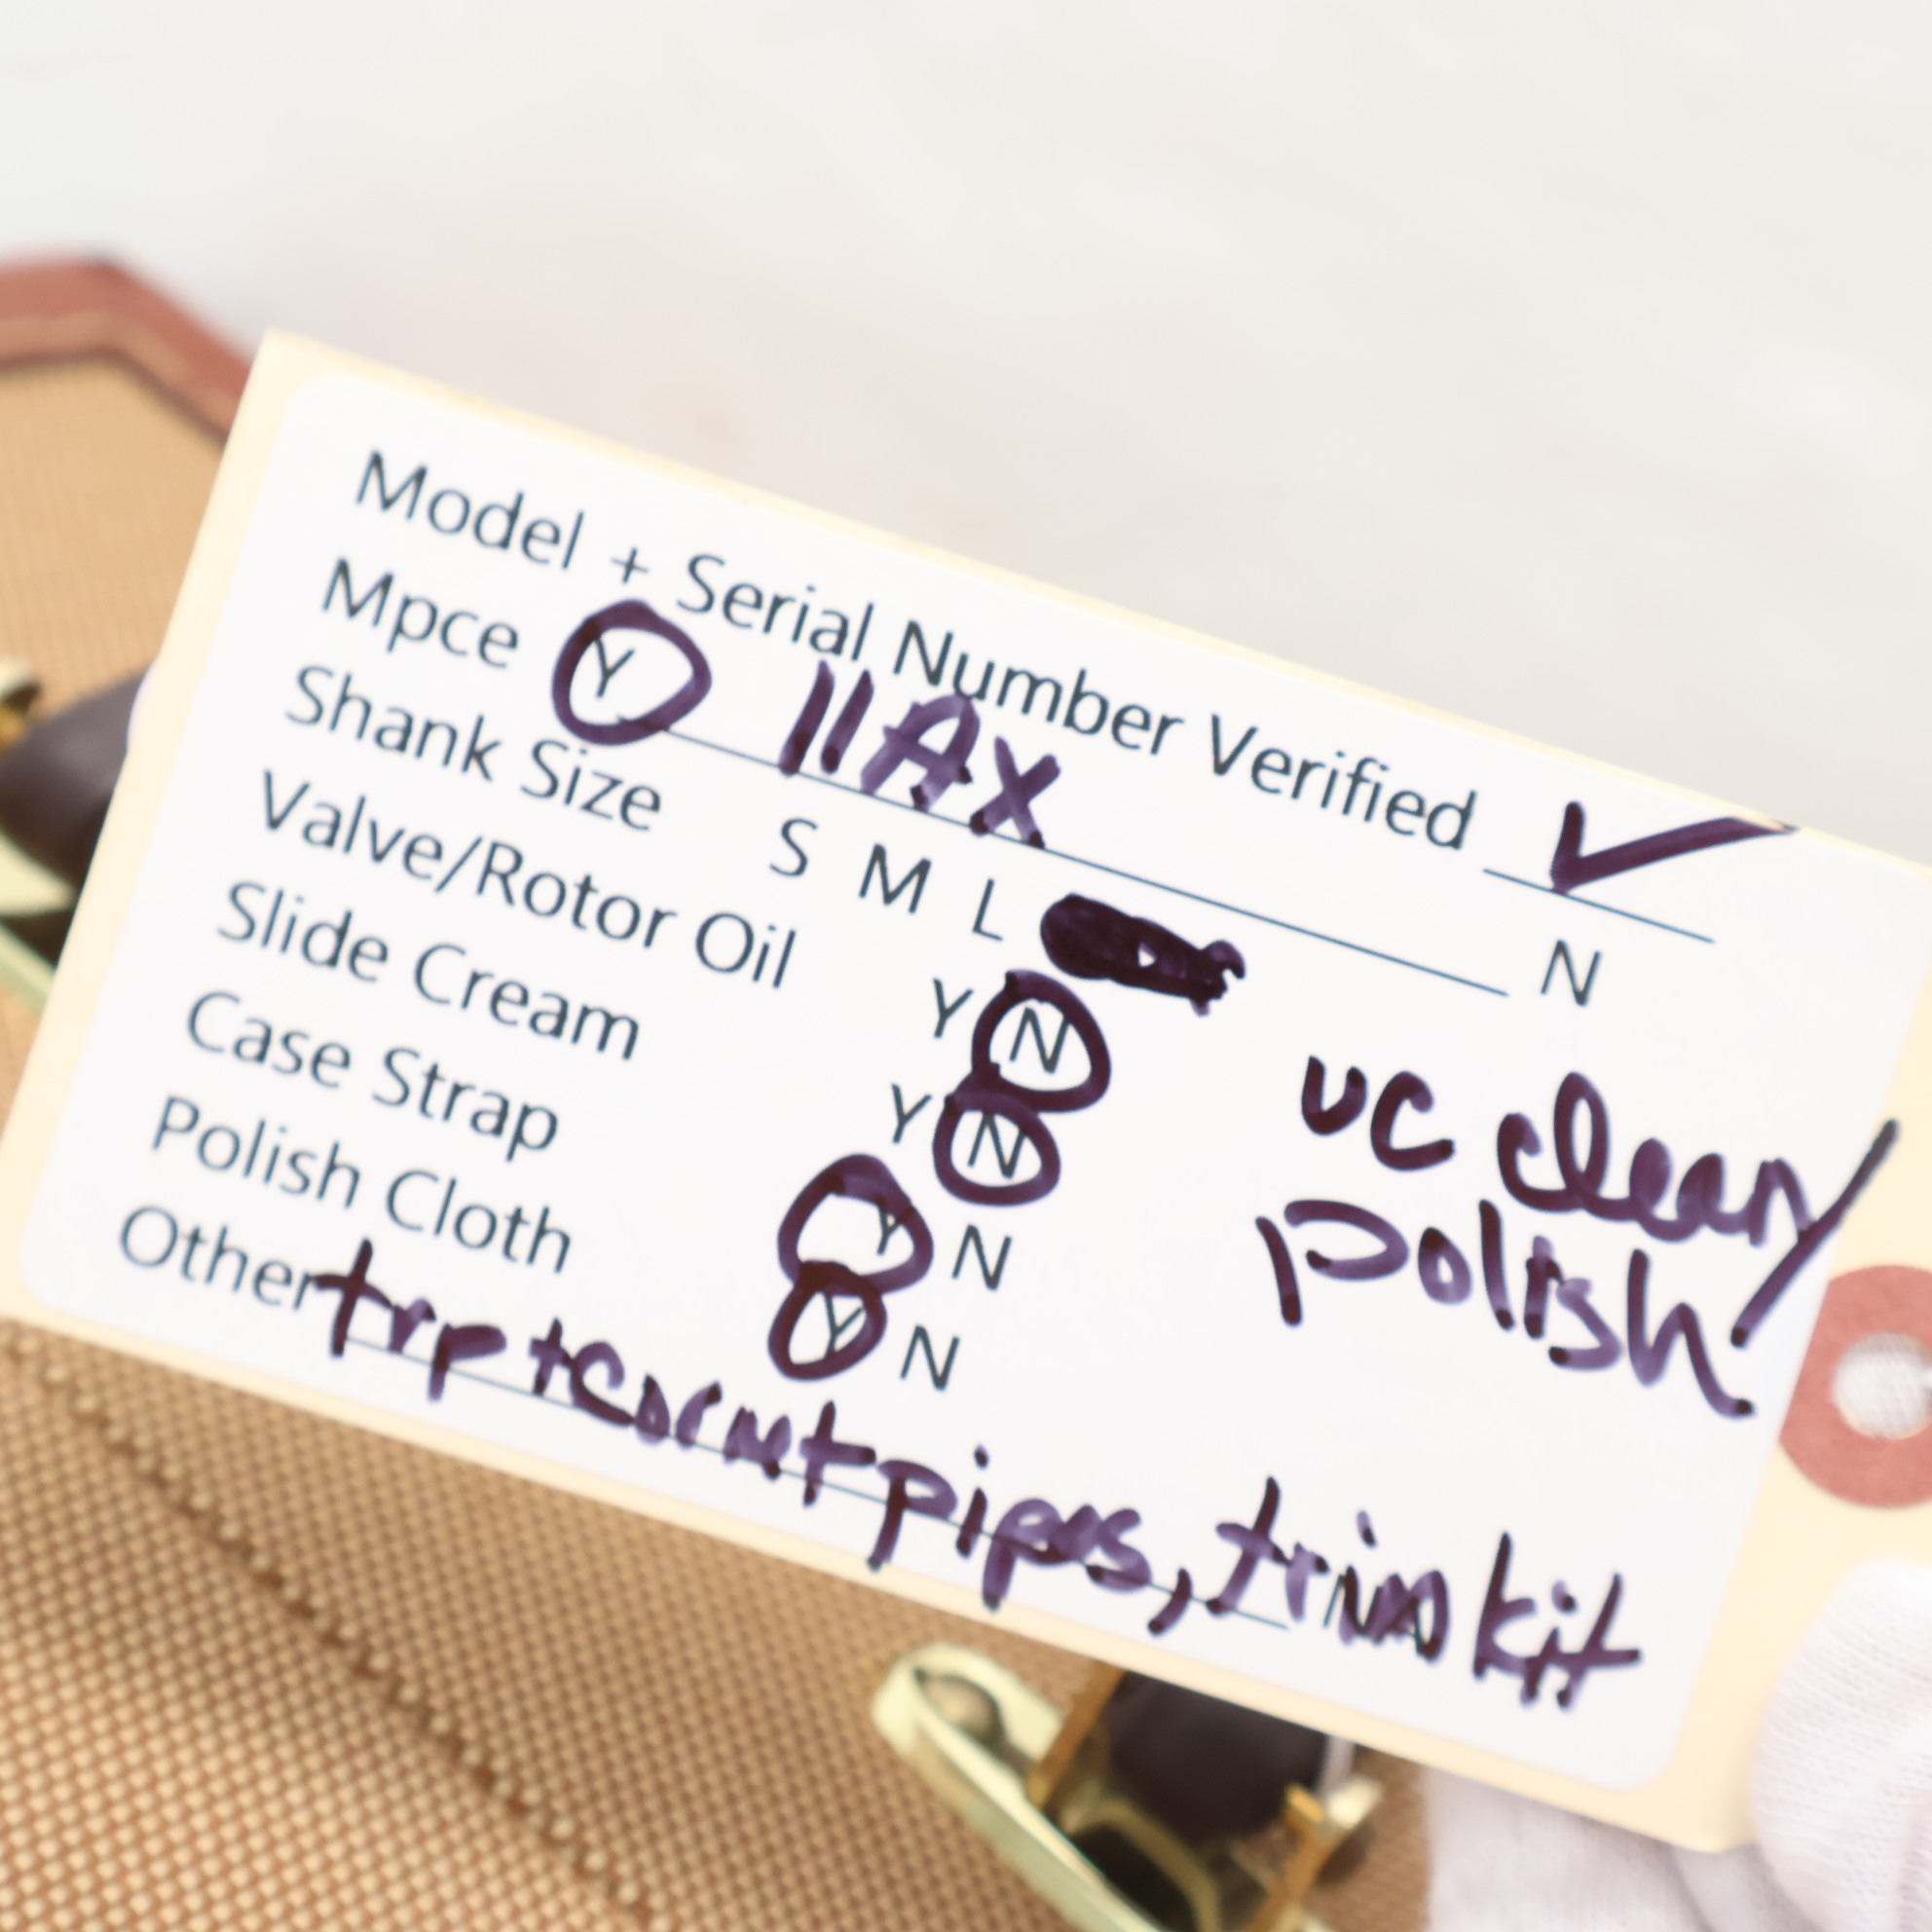 Model + Serial Number Verified ✓
Mpce Y 11AX N
Shank Size S M L
Valve/Rotor Oil Y N
Slide Cream Y N
Case Strap Y N
Polish Cloth Y N
Other trp + cornt pipes, trim kit
UC clean/
polish